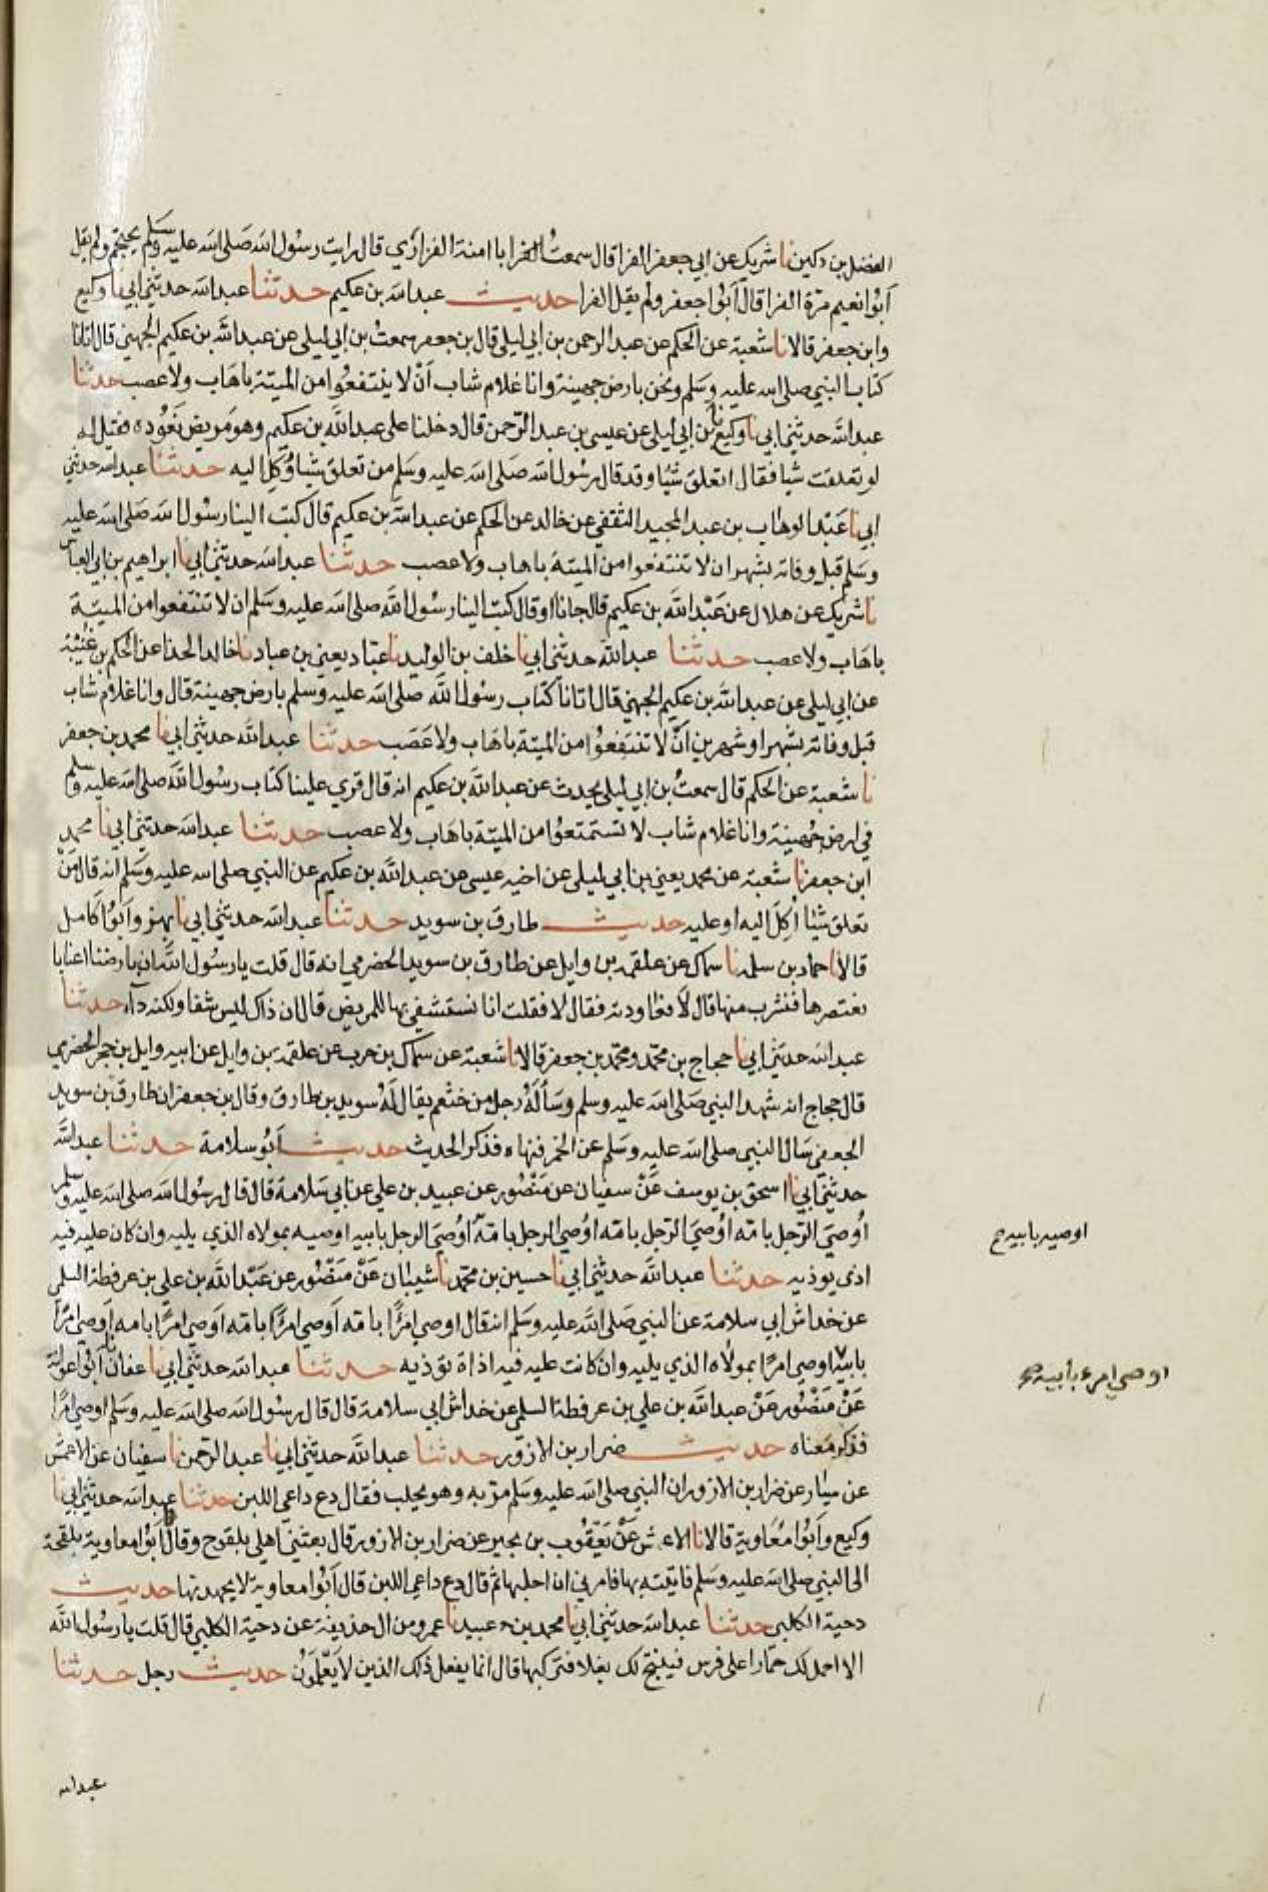 الفضل بن دكين نا شريك عن ابي جعفر الفرا قال سمعت الفرا با امنة الفزاري قال رايت رسول الله صلى الله عليه وسلم يحتجم ولم يقل
أبوا نعيم مرة الفرا قال أبوا جعفر ولم يقل الفرا حديث عبد الله بن عكيم حدثنا عبد الله حدثني ابي نا وكيع
وابن جعفر قالا نا شعبة عن الحكم عن عبد الرحمن بن ابي ليلى قال بن جعفر سمعت بن ابي ليلى عن عبد الله بن عكيم الجهني قال اتانا
كتاب النبي صلى الله عليه وسلم ونحن بارض جهينة وانا غلام شاب أن لا ينتفعوا من الميتة باهاب ولا عصب حدثنا
عبد الله حدثني ابي نا وكيع نا بن ابي ليلى عن عيسى بن عبد الرحمن قال دخلنا على عبد الله بن عكيم وهو مريض نعوده فقيل له
لو تعلقت شيا فقال اتعلق شيا وقد قال رسول الله صلى الله عليه وسلم من تعلق شيا وكل اليه حدثنا عبد الله حدثني
ابي نا عبد الوهاب بن عبد المجيد الثقفي عن خالد عن الحكم عن عبد الله بن عكيم قال كتب الينا رسول الله صلى الله عليه
وسلم قبل وفاته بشهر ان لا تنتفعوا من الميتة باهاب ولا عصب حدثنا عبد الله حدثني ابي نا ابراهيم بن ابي العباس
نا شريك عن هلال عن عبد الله بن عكيم قال جانا او قال كتب الينا رسول الله صلى الله عليه وسلم ان لا تنتفعوا من الميتة
باهاب ولا عصب حدثنا عبد الله حدثني ابي نا خلف بن الوليد نا عباد يعني بن عباد نا خالد الحذا عن الحكم بن عتيبة
عن ابي ليلى عن عبد الله بن عكيم الجهني قال اتانا كتاب رسول الله صلى الله عليه وسلم بارض جهينة قال وانا غلام شاب
قبل وفاته بشهر او شهرين ان لا تنتفعوا من الميتة باهاب ولا عصب حدثنا عبد الله حدثني ابي نا محمد بن جعفر
نا شعبة عن الحكم قال سمعت بن ابي ليلى يحدث عن عبد الله بن عكيم انه قال قري علينا كتاب رسول الله صلى الله عليه وسلم
في ارض جهينة وانا غلام شاب لا تستمتعوا من الميتة باهاب ولا عصب حدثنا عبد الله حدثني ابي نا محمد
ابن جعفر نا شعبة عن محمد يعني بن ابي ليلى عن اخيه عيسى عن عبد الله بن عكيم عن النبي صلى الله عليه وسلم انه قال من
تعلق شيئا أكل اليه او عليه حديث طارق بن سويد حدثنا عبد الله حدثني ابي نا بهز وأبوا كامل
قالا نا حماد بن سلمه نا سماك عن علقمه بن وايل عن طارق بن سويد الحضرمي انه قال قلت يا رسول الله ان بارضنا اعنابا
نعتصرها فنشرب منها قال لا فعاودته فقال لا فقلت انا نستشفي بها للمريض قال ان ذاك ليس شفا ولكنه داء حدثنا
عبد الله حدثني ابي نا حجاج بن محمد ومحمد بن جعفر قالا نا شعبة عن سماك بن حرب عن علقمه بن وايل عن ابيه وايل بن حجر الحضرمي
قال حجاج انه شهد النبي صلى الله عليه وسلم وسأله رجل من خثعم يقال له سويد بن طارق وقال بن جعفر ان طارق بن سويد
الجعفي سال النبي صلى الله عليه وسلم عن الخمر فنهاه فذكر الحديث حديث أبو سلامة حدثنا عبد الله
حدثني ابي نا اسحق بن يوسف عن سفيان عن منصور عن عبيد بن علي عن ابي سلامة قال قال رسول الله صلى الله عليه وسلم
أوصي الرجل بامه اوصي الرجل بامه اوصي الرجل بامه اوصي الرجل بابيه اوصيه بمولاه الذي يليه وان كان عليه فيه
اوصيه بابيه صح
اذى يوذيه حدثنا عبد الله حدثني ابي نا حسين بن محمد نا شيبان عن منصور عن عبد الله بن علي بن عرفطة السلمي
عن خداش ابي سلامة عن النبي صلى الله عليه وسلم انه قال اوصي امرأ بامه أوصي امرأ بامه اوصي امرأ بامه اوصي امرأ
بابيه اوصي امرأ بمولاه الذي يليه وان كانت عليه فيه اذاة توذيه حدثنا عبد الله حدثني ابي نا عفان نا أبوا عوانة
اوصي امرء بأبيه صح
عن منصور عن عبد الله بن علي بن عرفطة السلمي عن خداش ابي سلامة قال قال رسول الله صلى الله عليه وسلم اوصي امرأ
فذكر معناه حديث ضرار بن الازور حدثنا عبد الله حدثني ابي نا عبد الرحمن نا سفيان عن الاعمش
عن سنان عن ضرار بن الازور ان النبي صلى الله عليه وسلم مر به وهو يحلب فقال دع داعي اللبن حدثنا عبد الله حدثني ابي نا
وكيع وأبوا معاوية قالا نا الاعمش عن يعقوب بن بحير عن ضرار بن الازور قال بعثني اهلي بلقوح وقال ابوا معاوية بلقحة
الى النبي صلى الله عليه وسلم فاتيته بها فامرني ان احلبها ثم قال دع داعي اللبن قال أبوا معاوية لا يجهدنها حديث
دحية الكلبي حدثنا عبد الله حدثني ابي نا محمد بن عبيد نا عمر ومن ال حذيفة عن دحية الكلبي قال قلت يا رسول الله
الا احمل لك حمارا على فرس فينتج لك بغلا فتركبها قال انما يفعل ذلك الذين لا يعلمون حديث رجل حدثنا
عبد الله